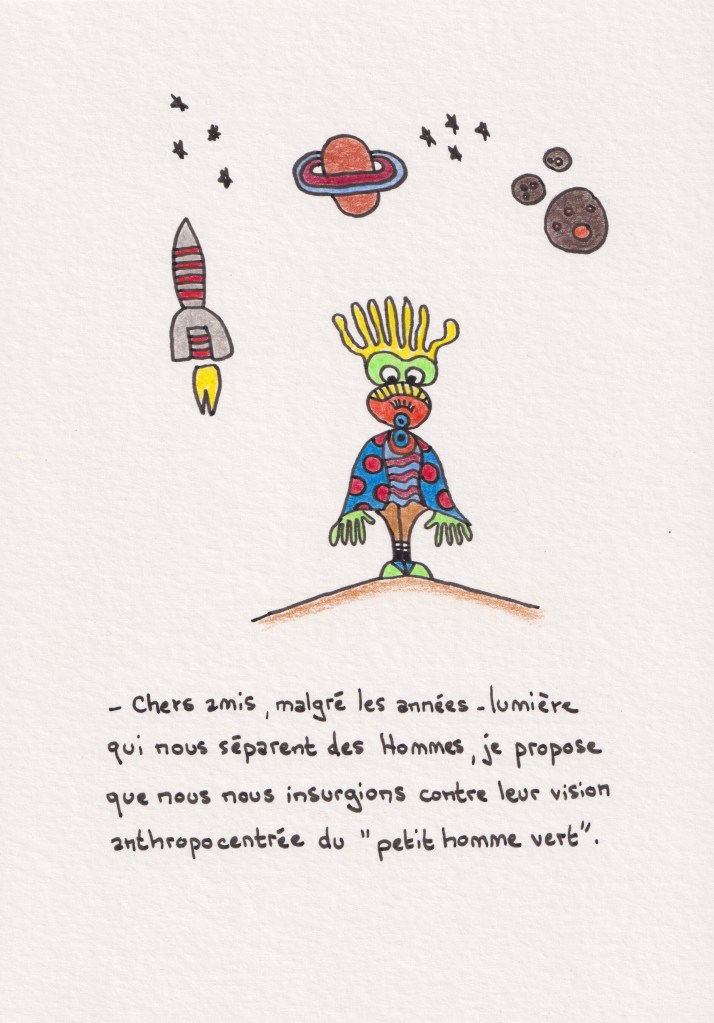 - Chers amis, malgré les années-lumière
qui nous séparent des Hommes, je propose
que nous nous insurgions contre leur vision
anthropocentrée du "petit homme vert".